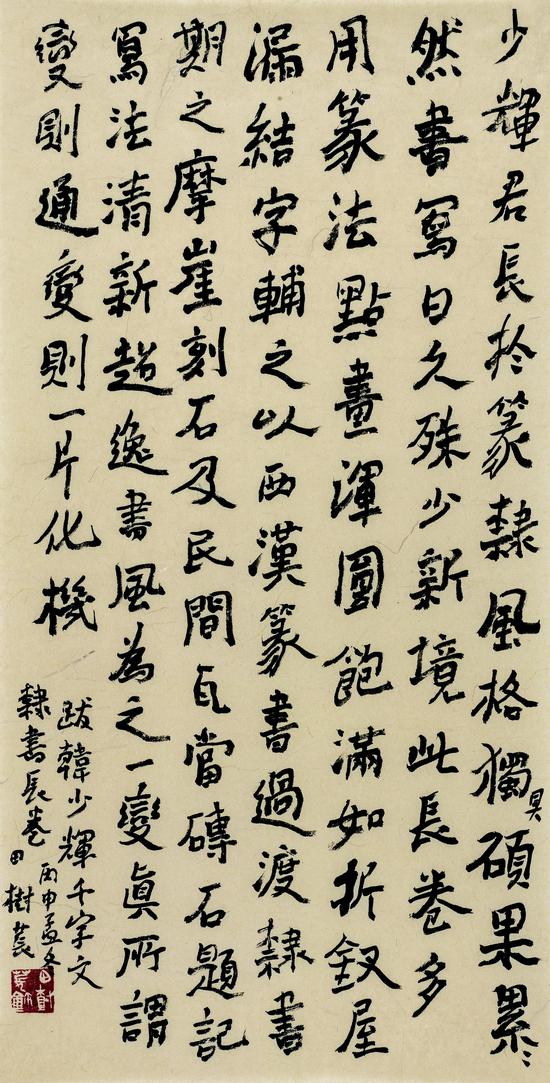 少輝君長於篆隸風格獨具碩果累〻
然書寫日久殊少新境此長卷多
用篆法點畫渾圓飽滿如折釵屋
漏結字輔之以西漢篆書過渡隸書
期之摩崖刻石及民間瓦當磚石題記
寫法清新超逸書風為之一變真所謂
變則通變則一片化機
跋韓少輝千字文
隸書長卷丙申孟冬
田樹萇